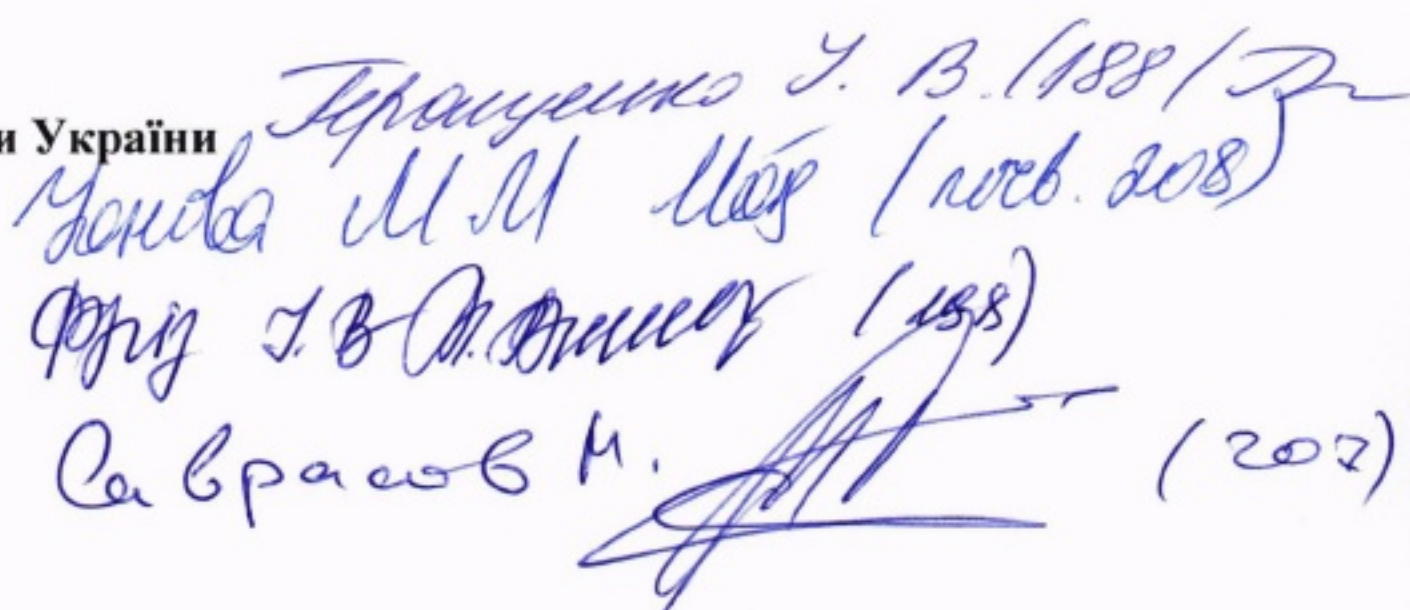 и України
Геращенко І. В. (188)
Іонова М М (посв. 208)
Фріз І. В (198)
Саврасов М. (207)